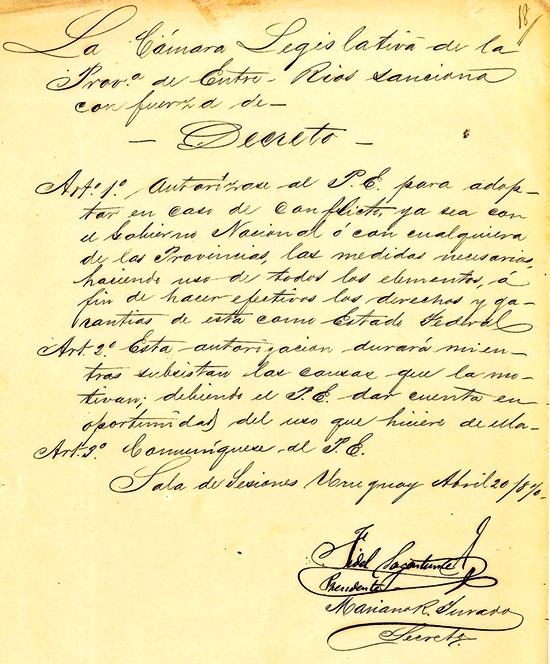 18
La Cámara Legislativa de la
Prov.ª de Entre-Rios sanciona
con fuerza de—
— Decreto —
Art.º 1.º Autorízase al P.E. para adop-
tar en caso de conflicto, ya sea con
el Gobierno Nacional ó con cualquiera
de las Provincias, las medidas necesarias,
haciendo uso de todos los elementos, á
fin de hacer efectivos los derechos y ga-
rantias de esta como Estado Federal
Art. 2.º Esta autorizacion durará mien-
tras subsistan las causas que la mo-
tivan; debiendo el P.E. dar cuenta en
oportunidad del uso que hiciere de ella-
Art. 3.º Comuníquese al P.E.
Sala de Sesiones Uruguay Abril 20/870-
Fidel Sagastume
Presidente
Mariano R. Jurado
Secret.º